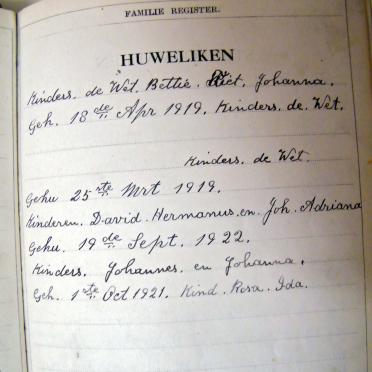 FAMILIE REGISTER.
HUWELIKEN
Kinders. de Wet. Bettie. Piet. Johanna.
Geh. 18 de Apr 1919. Kinders. de. Wet.
Kinders. de Wet.
Gehu 25 ste Mrt 1919.
Kinderen. David. Hermanus. en Joh. Adriana
Gehu. 19 de Sept. 1922.
Kinders. Johannes. en Johanna.
Geh. 1 ste Oct 1921. Kind. Rosa. Ida.